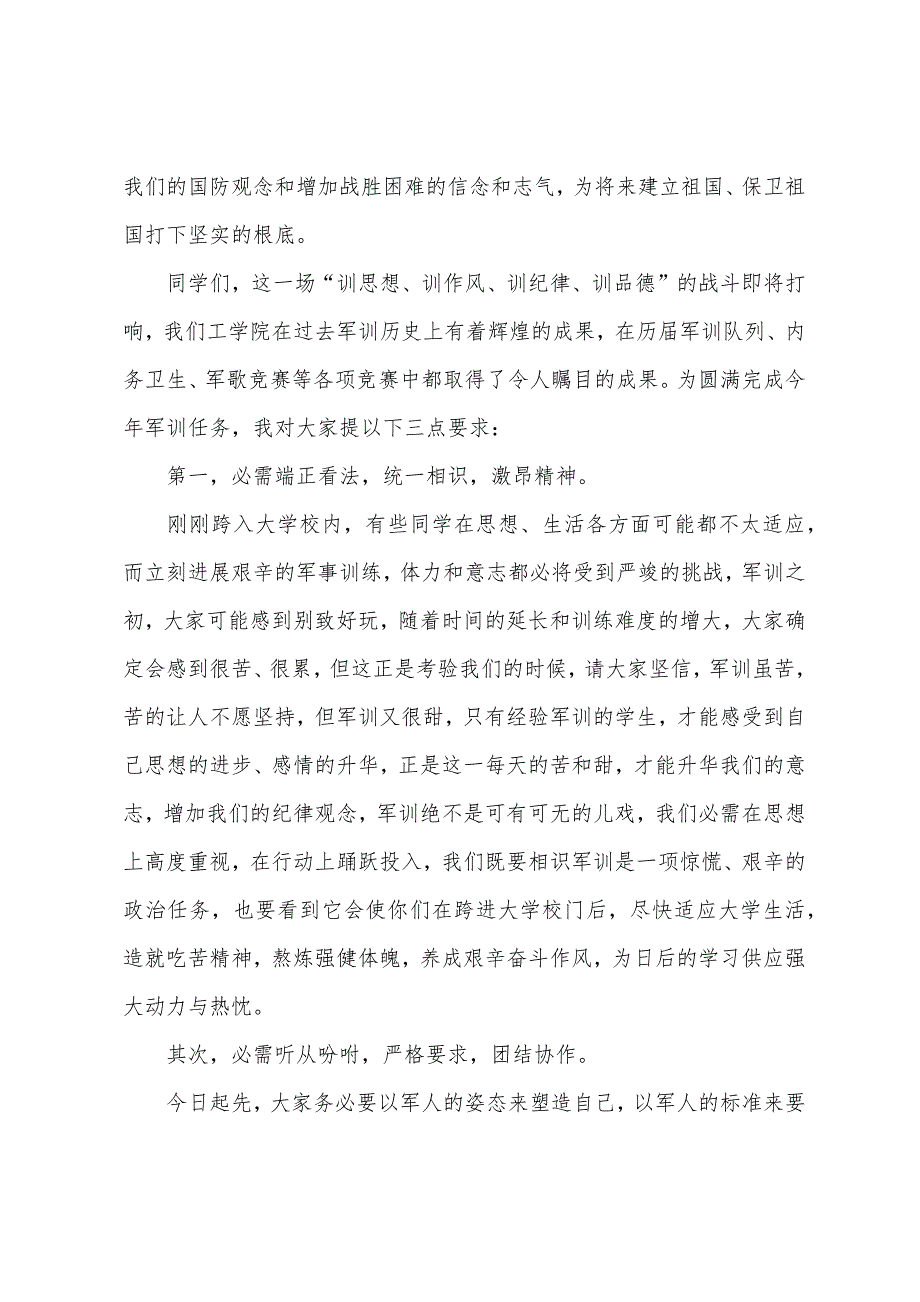 我们的国防观念和增加战胜困难的信念和志气，为将来建立祖国、保卫祖
国打下坚实的根底。
同学们，这一场“训思想、训作风、训纪律、训品德”的战斗即将打
响，我们工学院在过去军训历史上有着辉煌的成果，在历届军训队列、内
务卫生、军歌竞赛等各项竞赛中都取得了令人瞩目的成果。为圆满完成今
年军训任务，我对大家提以下三点要求：
第一，必需端正看法，统一相识，激昂精神。
刚刚跨入大学校内，有些同学在思想、生活各方面可能都不太适应，
而立刻进展艰辛的军事训练，体力和意志都必将受到严竣的挑战，军训之
初，大家可能感到别致好玩，随着时间的延长和训练难度的增大，大家确
定会感到很苦、很累，但这正是考验我们的时候，请大家坚信，军训虽苦，
苦的让人不愿坚持，但军训又很甜，只有经验军训的学生，才能感受到自
己思想的进步、感情的升华，正是这一每天的苦和甜，才能升华我们的意
志，增加我们的纪律观念，军训绝不是可有可无的儿戏，我们必需在思想
上高度重视，在行动上踊跃投入，我们既要相识军训是一项惊慌、艰辛的
政治任务，也要看到它会使你们在跨进大学校门后，尽快适应大学生活，
造就吃苦精神，熬炼强健体魄，养成艰辛奋斗作风，为日后的学习供应强
大动力与热忱。
其次，必需听从吩咐，严格要求，团结协作。
今日起先，大家务必要以军人的姿态来塑造自己，以军人的标准来要